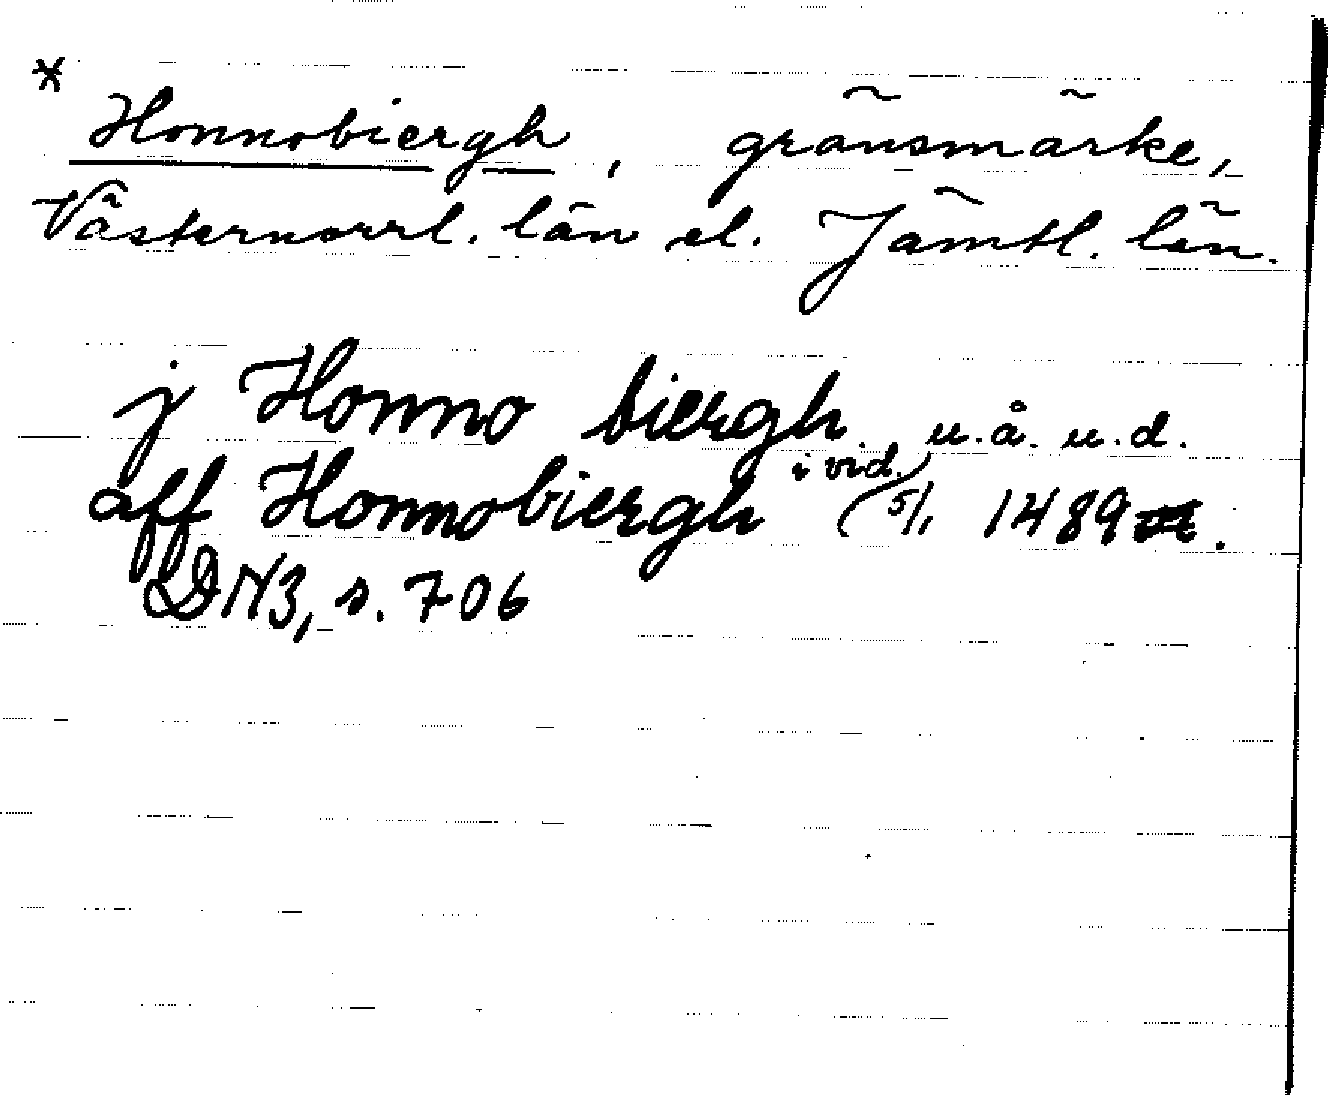 *
Honnobiergh, gränsmärke,
Västernorrl. län el. Jämtl. län.
j Honno biergh u.å. u.d.
aff Honnobiergh i vid. (5/1 1489.
DN3, s. 706